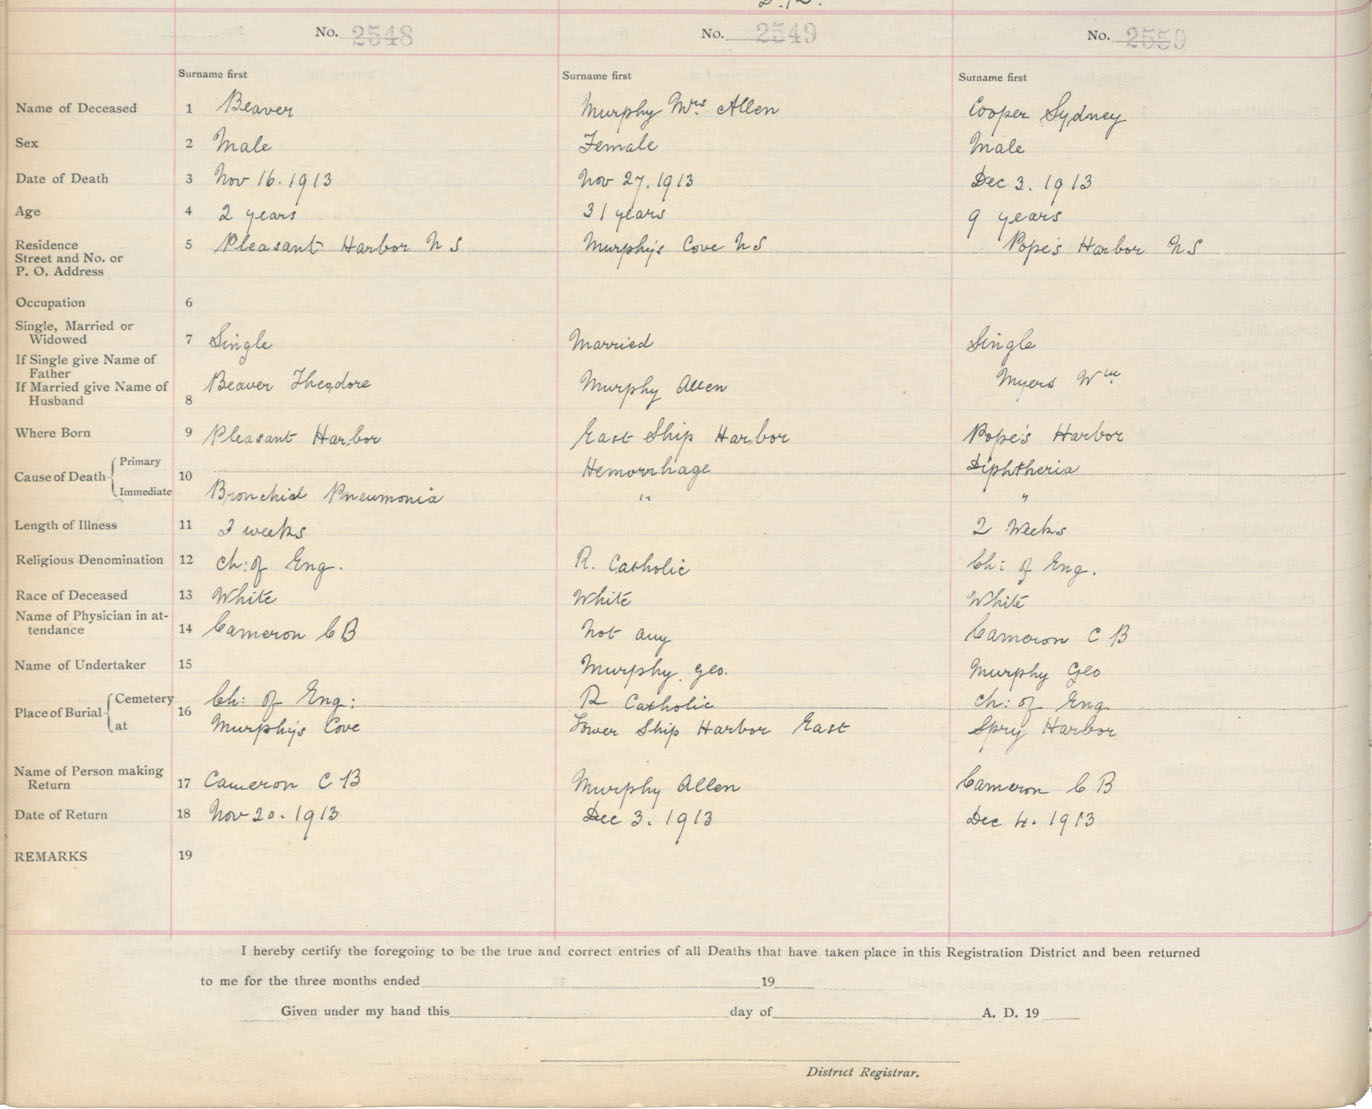 No. 2548 No. 2549 No. 2550
Surname first Surname first Surname first
Name of Deceased 1 Beaver Murphy Mrs. Allen Cooper Sydney
Sex 2 Male Female Male
Date of Death 3 Nov 16. 1913 Nov 27. 1913 Dec 3. 1913
Age 4 2 years 31 years 9 years
Residence 5 Pleasant Harbor N S Murphy's Cove N S Pope's Harbor N S
Street and No. or
P. O. Address
Occupation 6
Single, Married or
Widowed 7 Single Married Single
If Single give Name of
Father
If Married give Name of Beaver Theodore Murphy Allen Myers Wm
Husband 8
Where Born 9 Pleasant Harbor East Ship Harbor Pope's Harbor
Primary Hemorrhage Diphtheria
Cause of Death 10
Immediate Bronchial Pneumonia " "
Length of Illness 11 2 weeks 2 Weeks
Religious Denomination 12 Ch: of Eng. R. Catholic Ch: of Eng.
Race of Deceased 13 White White White
Name of Physician in at-
tendance 14 Cameron C B Not any Cameron C B
Name of Undertaker 15 Murphy, Geo. Murphy Geo
Cemetery Ch: of Eng: R Catholic Ch: of Eng
Place of Burial 16
at Murphy's Cove Lower Ship Harbor East Spry Harbor
Name of Person making
Return 17 Cameron C B Murphy Allen Cameron C B
Date of Return 18 Nov 20. 1913 Dec 3. 1913 Dec 4. 1913
REMARKS 19
I hereby certify the foregoing to be the true and correct entries of all Deaths that have taken place in this Registration District and been returned
to me for the three months ended 19
Given under my hand this day of A. D. 19
District Registrar.